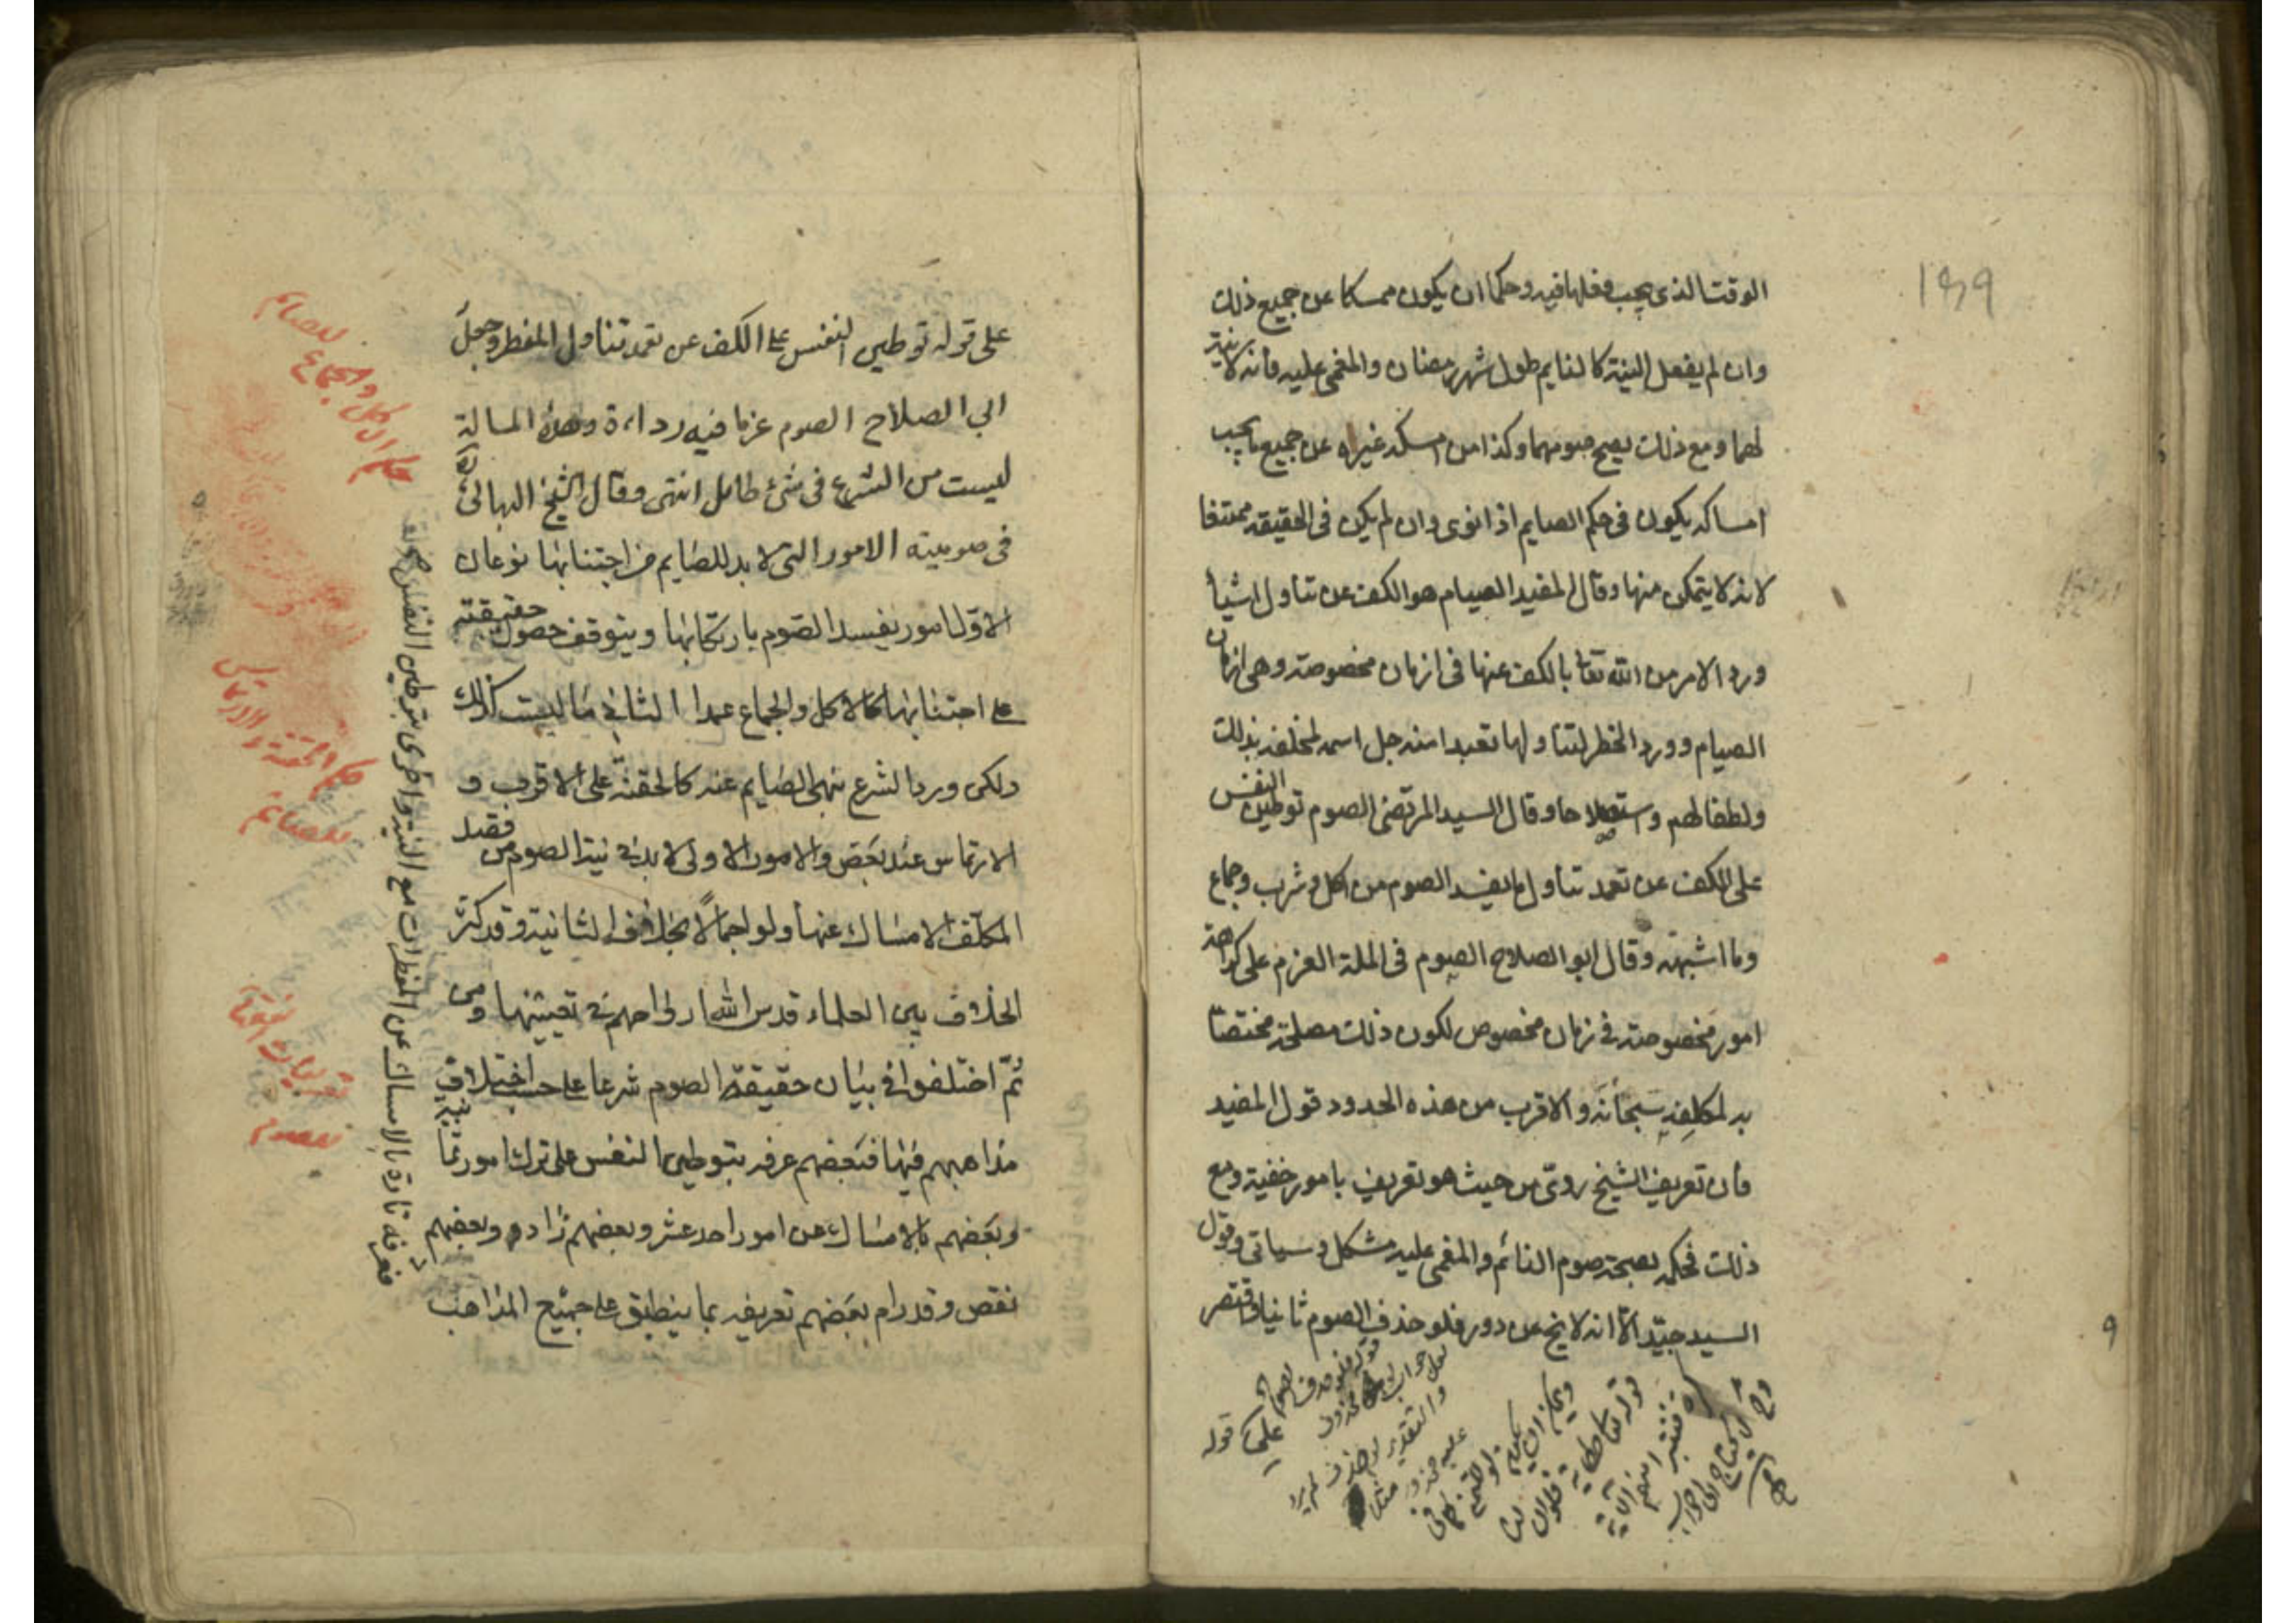 الوقت الذى يجب فعلها فيه وحكما ان يكون ممسكا عن جميع ذلك
وان لم يفعل النية كالنايم طول شهر رمضان والمغمى عليه فانه لا نية
لهما ومع ذلك يصح صومهما وكذا من امسكه غيره عن جميع ما يجب
امساكه يكون فى حكم الصايم اذا نوى وان لم يكن فى الحقيقه ممتنعا
لانه لا يتمكن منها وقال المفيد الصيام هو الكف عن تناول اشيأ
ورد الامر من الله تعا بالكف عنها فى ازمان مخصوصة وهى ازمان
الصيام وورد الحظر لتناولها تعبدا منه جل اسمه لخلقه بذلك
ولطفا لهم واستصلاحا وقال السيد المرتضى الصوم توطين النفس
على الكف عن تعمد تناول ما يفسد الصوم من اكل وشرب وجماع
وما اشبهه وقال ابو الصلاح الصوم فى الملة العزم على كراهة
امور مخصوصة فى زمان مخصوص لكون ذلك مصلحة مختصا
بد لمكلفه سبحانه والاقرب من هذه الحدود قول المفيد
فان تعريف الشيخ ردىّ من حيث هو تعريف بامور خفية ومع
ذلك فحكمه بصحة صوم النائم والمغمى عليه مشكل وسياتى وقول
السيد جيّد الّا انه لا يخ عن دور فلو حذف الصوم ثانيا واقتصر
قوله فلو حذف الصوم الخ
لعل جواب لو محذوف
والتقدير لو حذف لم يرد
عليه محذور مثلا
على قوله توطين النفس على الكف عن تعمد تناول المفطر وجعل
ابى الصلاح الصوم عزما فيه رداءة وهذه المسالة
ليست من الشرع فى شئ طامل انتهى وقال الشيخ البهائى
فى صوميته الامور التى لا بد للصايم من اجتنابها نوعان
الاوّل امور يفسد الصّوم بارتكابها ويتوقف حصول حقيقته
على اجتنابها كالاكل والجماع عمدا الثانى ما ليست كذلك
ولكن ورد الشرع بنهى الصايم عنه كالحقنة على الاقرب و
الارتماس عند بعض والامور الاولى لا بد فى نية الصوم من قصد
المكلف الامساك عنها ولو اجمالًا بخلاف الثانية وقد كثر
الخلاف بين العلماء قدس الله ارواحهم فى تعيينها ومن
ثمّ اختلفوا فى بيان حقيقة الصوم شرعا على حسب اختلاف
مذاهبهم فيها فبعضهم عرفه بتوطين النفس على ترك امور ثمانية
وبعضهم بالامساك عن امور احد عشر وبعضهم زاد وبعضهم
نقص وقد رام بعضهم تعريفه بما ينطبق على جميع المذاهب
فعرفه تارة بالامساك عن المفطرات مع النية واخرى بتوطين النفس
حكم الاكل والجماع للصائم
حكم الحقنة والارتماس للصائم
تعريفات الفقهاء للصوم